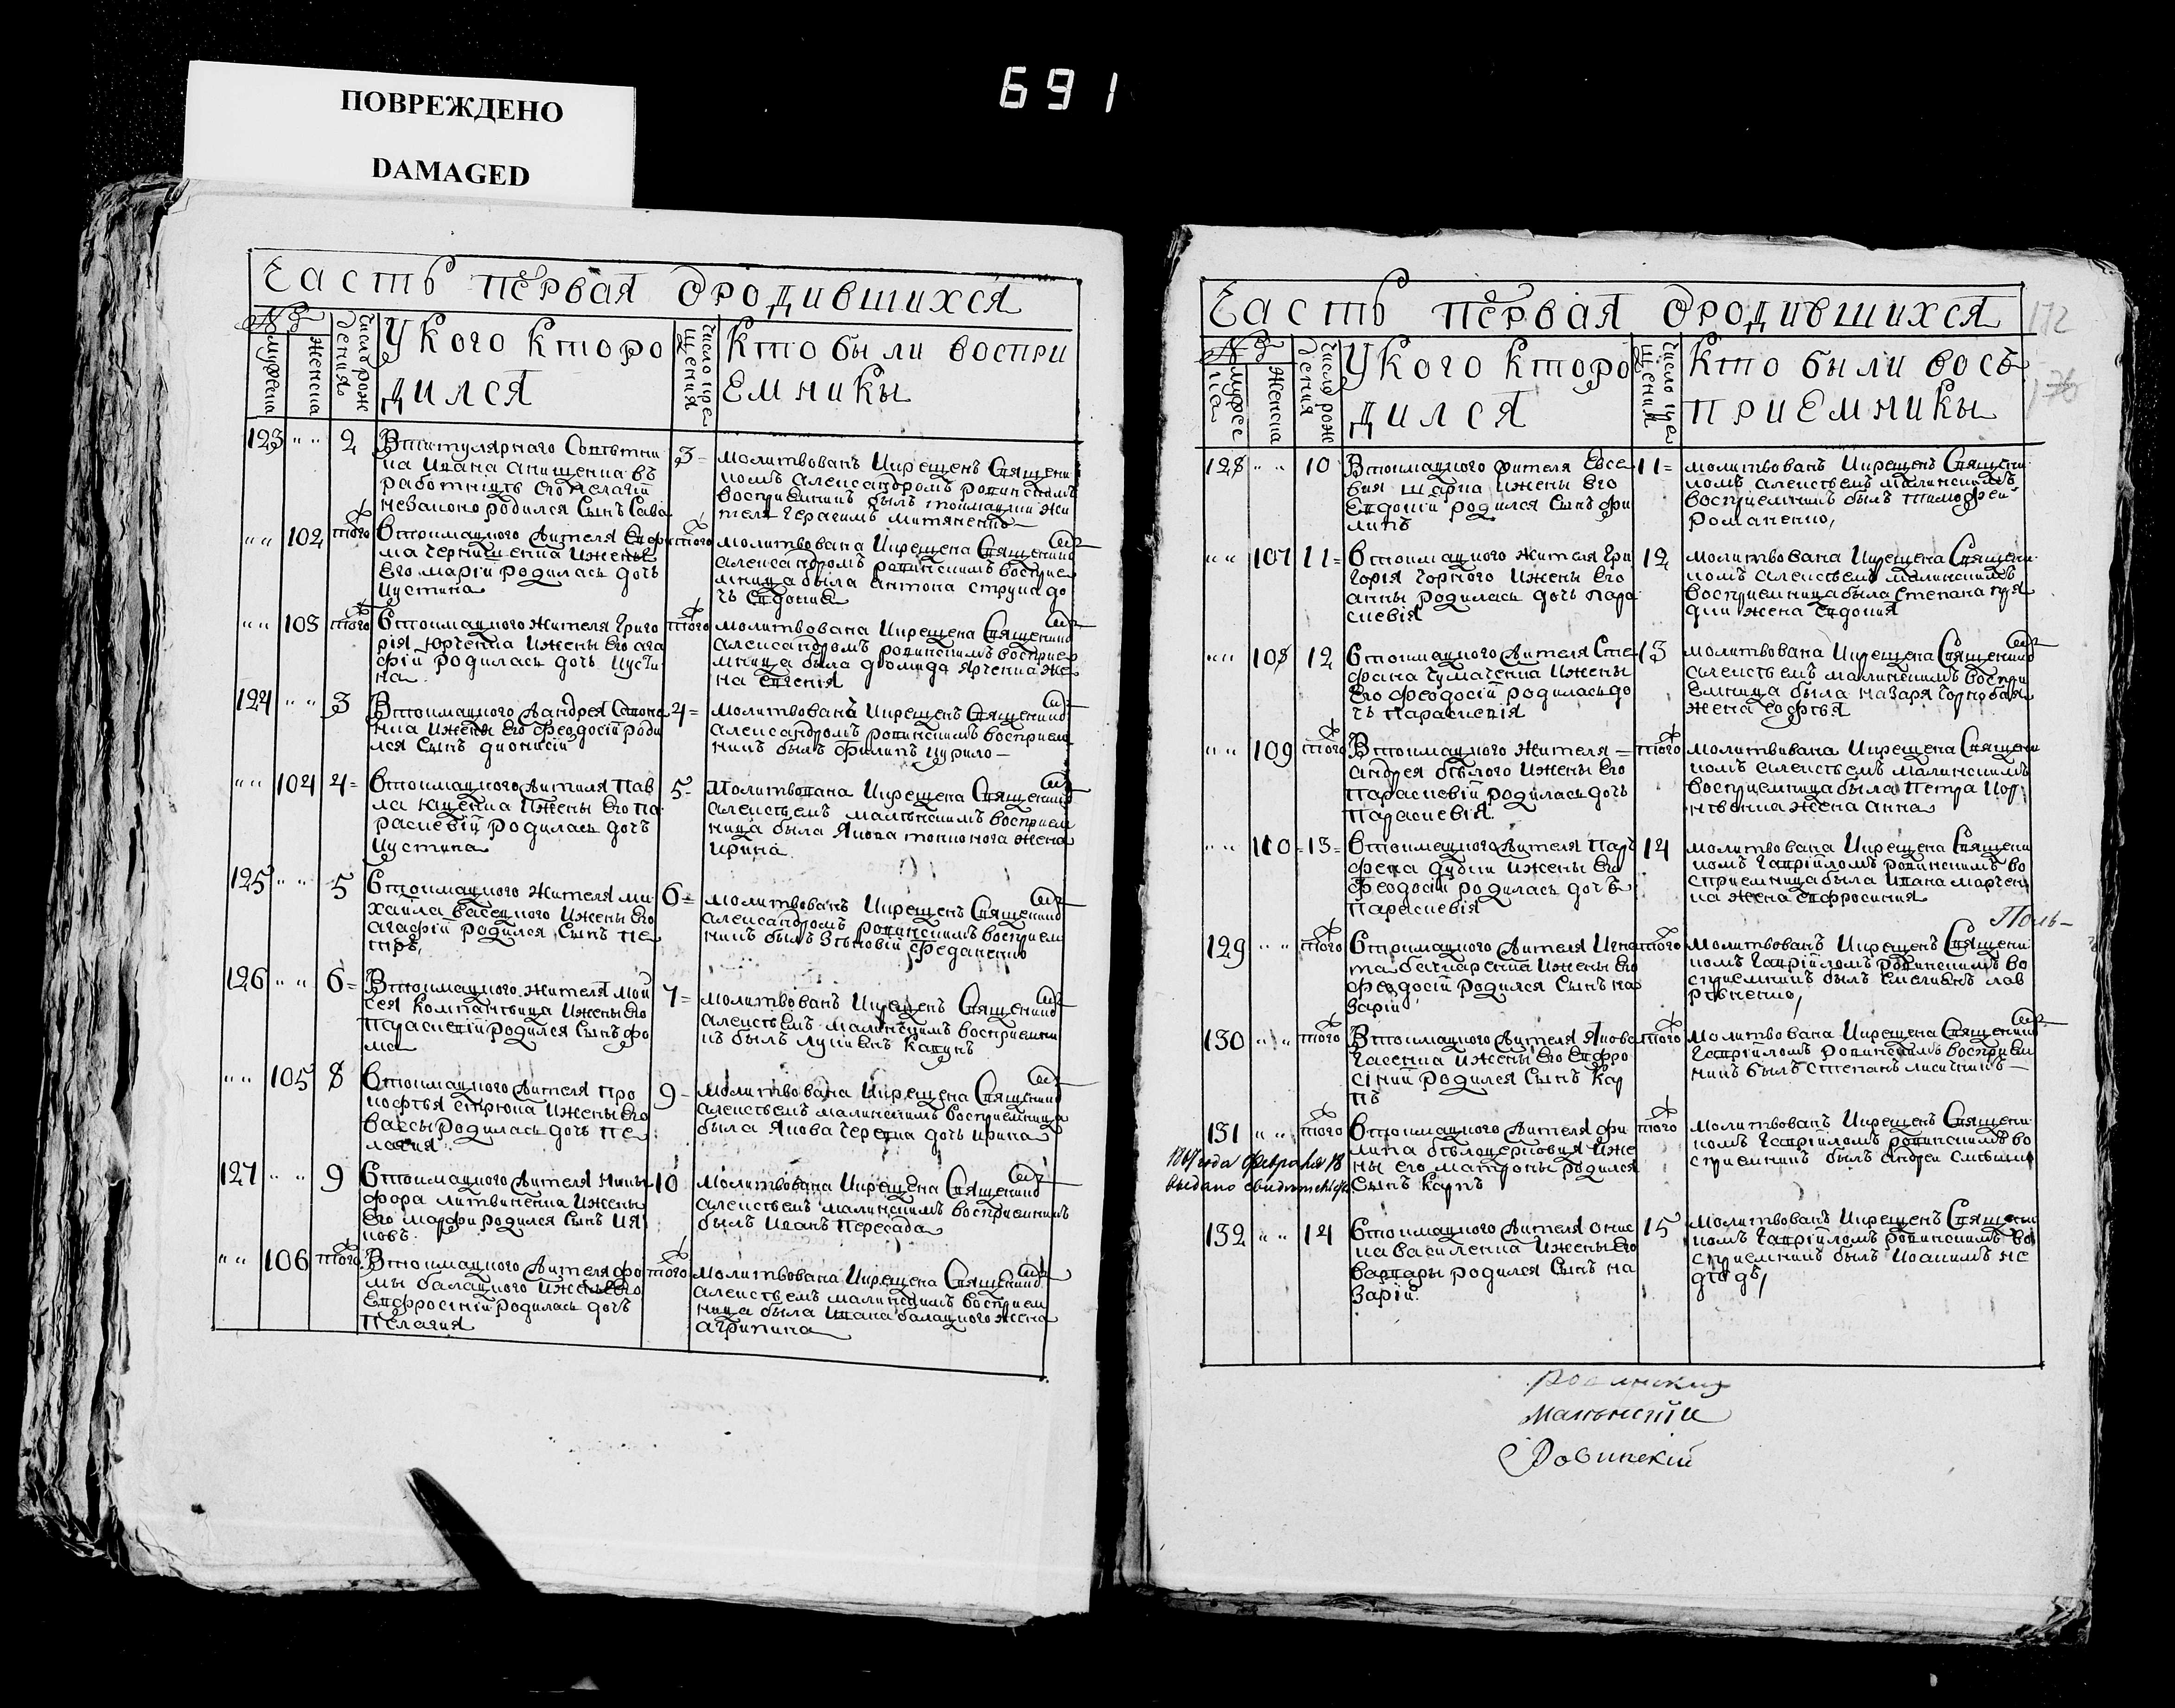 691
ПОВРЕЖДЕНО
DAMAGED
Часть первая о родившихся
№
мужеска
женска
число рож
дения
У кого кто ро
дился
число кре
щения
Кто были воспри
емники
123 " " 2
В титулярного Советни
ка Ивана Онищенка въ
работницы его Пелагіи
незаконо родился Сынъ Сава
3
молитвованъ и крещенъ Священи
комъ Александромъ Ровинскимъ
восприемникъ былъ тоймацкий жи
тель Герасимъ Митяненко
" " 102 того
В тоймацкого жителя Ефи
ма Чернишенка и жены
его Маріи родилась дочь
Иустина
того
молитвована и крещена Священико
Александромъ Ровинскимъ восприе
мница была Антона Струка до
чь Евдокия
" " 103 того
В тоймацкого жителя Григо
рія Юрченка и жены его Ага
фіи родилась дочь Иусти
на
того
молитвована и крещена Священико
Александромъ Ровинскимъ восприе
мница была Диомида Ярченка же
на Евгенія
124 " " 3
В тоймацкого Андрея
и жены его Феодосіи роди
лся Сынъ Дионисий
4
молитвованъ и крещенъ Священико
Александромъ Ровинскимъ восприем
никъ былъ Филипъ Курило
" " 104 4
В тоймацкого жителя Пав
ла Кащенка и жены его Па
раскевіи родилась дочь
Иустина
5
Молитвована и крещена Священико
Алексеемъ Малинскимъ восприем
ница была Якова Тонконога жена
Ирина
125 " " 5
В тоймацкого жителя Ми
хаила Васецкого и жены его
Агафіи родился Сынъ Пе
тръ
6
молитвованъ и крещенъ Священико
Александромъ Ровинскимъ восприем
никъ былъ Зѣновій Феданенко
126 " " 6
В тоймацкого жителя Мои
сея Компанѣица и жены его
Параскевіи родился Сынъ Фо
ма
7
молитвованъ и крещенъ Священико
Алексѣемъ Малинскимъ восприемни
къ былъ Лукиенъ Кавунъ
" " 105 8
В тоймацкого жителя Про
кофья Стрюка и жены его
Вассы родилась дочь Пе
лагия
9
молитвована и крещена Священико
Алексѣемъ Малинскимъ восприемница
была Якова Черевка дочь Ирина
127 " " 9
В тоймацкого жителя Ники
фора Литвиненка и жены
его Марфи родился Сынъ Ия
ковъ
10
молитвована и крещена Священико
Алексѣемъ Малинскимъ восприемникъ
былъ Иванъ Пересада
" " 106 того
В тоймацкого жителя Фо
мы Балацкого и жены его
Евфросініи родилась дочь
Пелагия
того
молитвована и крещена Священико
Алексѣемъ Малинскимъ восприем
ница была Ивана Балацкого жена
Агрипина
Часть первая о родившихся
172
№
мужес
ка
женска
число рож
дения
У кого кто ро
дился
число кре
щения
Кто были восъ
приемники
176
128 " " 10
В тоймацкого жителя Евсе
вия Шарпа и жены его
Евдокіи родился Сынъ Фи
липъ
11
молитвованъ и крещенъ Священи
комъ Алексѣемъ Малинскимъ
восприемникъ былъ Тимофей
Романенко,
" " 107 11
В тоймацкого жителя Гри
горія Горного и жены его
Анны родилась дочь Пара
скевія
12
молитвована и крещена Священи
комъ Алексѣемъ Малинскимъ
восприемница была Степана
жена Евдокия
" " 108 12
В тоймацкого жителя Сте
фана Чумаченка и жены
его Феодосіи родилась до
чь Параскевія
13
молитвована и крещена Священико
Алексѣемъ Малинскимъ воспри
емница была Назаря Горнобая
жена Софья
" " 109 того
В тоймацкого жителя
Андрея Бѣлого и жены его
Параскевіи родилась дочь
Параскевія
того
молитвована и крещена Священи
комъ Алексѣемъ Малинскимъ
восприемница была Петра
жена Анна
" " 110 13
В тоймацкого жителя Пар
фена Дубки и жены его
Феодосіи родилась дочь
Параскевія
14
молитвована и крещена Священи
комъ Гавріиломъ Ровинскимъ во
сприемница была Ивана Марчен
ка жена Евфросиния
129 " " того
В тоймацкого жителя Игна
та Бачкаренка и жены его
Феодосіи родился Сынъ На
зарій
того
молитвованъ и крещенъ Священи
комъ Гавріиломъ Ровинскимъ во
сприемникъ былъ Емелиянъ Лав
рѣненко,
130 " " того
В тоймацкого жителя Якова
Гасенка и жены его Евфро
сініи родился Сынъ Кар
пъ
того
молитвована и крещена Священико
Гавріиломъ Ровинскимъ восприем
никъ былъ Степанъ Лисичкинъ
131 " " того
В тоймацкого жителя Фи
липа Бѣлоцерковця и же
ны его Матроны родился
Сынъ Карпъ
того
молитвованъ и крещенъ Священи
комъ Гавріиломъ Ровинскимъ во
сприемникъ былъ Андрей
года февраля 18
выдано свидѣтельст.
132 " " 14
В тоймацкого жителя Онис
ка Василенка и жены его
Варвары родился Сынъ На
зарій
15
молитвованъ и крещенъ Священи
комъ Гавріиломъ Ровинскимъ во
сприемникъ былъ Иоакимъ Не
дгодъ,
Ровинский
Малинскій
Ровинскій